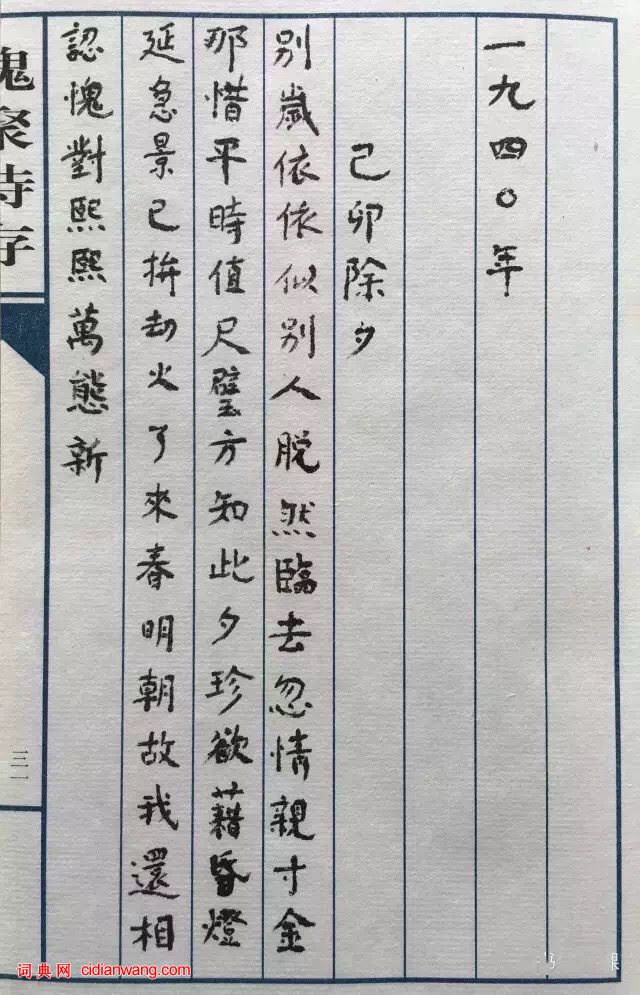 一九四〇年
己卯除夕
別歲依依似別人脫然臨去忽情親寸金
那惜平時值尺璧方知此夕珍欲藉昏燈
延急景已拚劫火了來春明朝故我還相
認愧對熙熙萬態新
槐聚诗存
三一
词典网 cidianwang.com